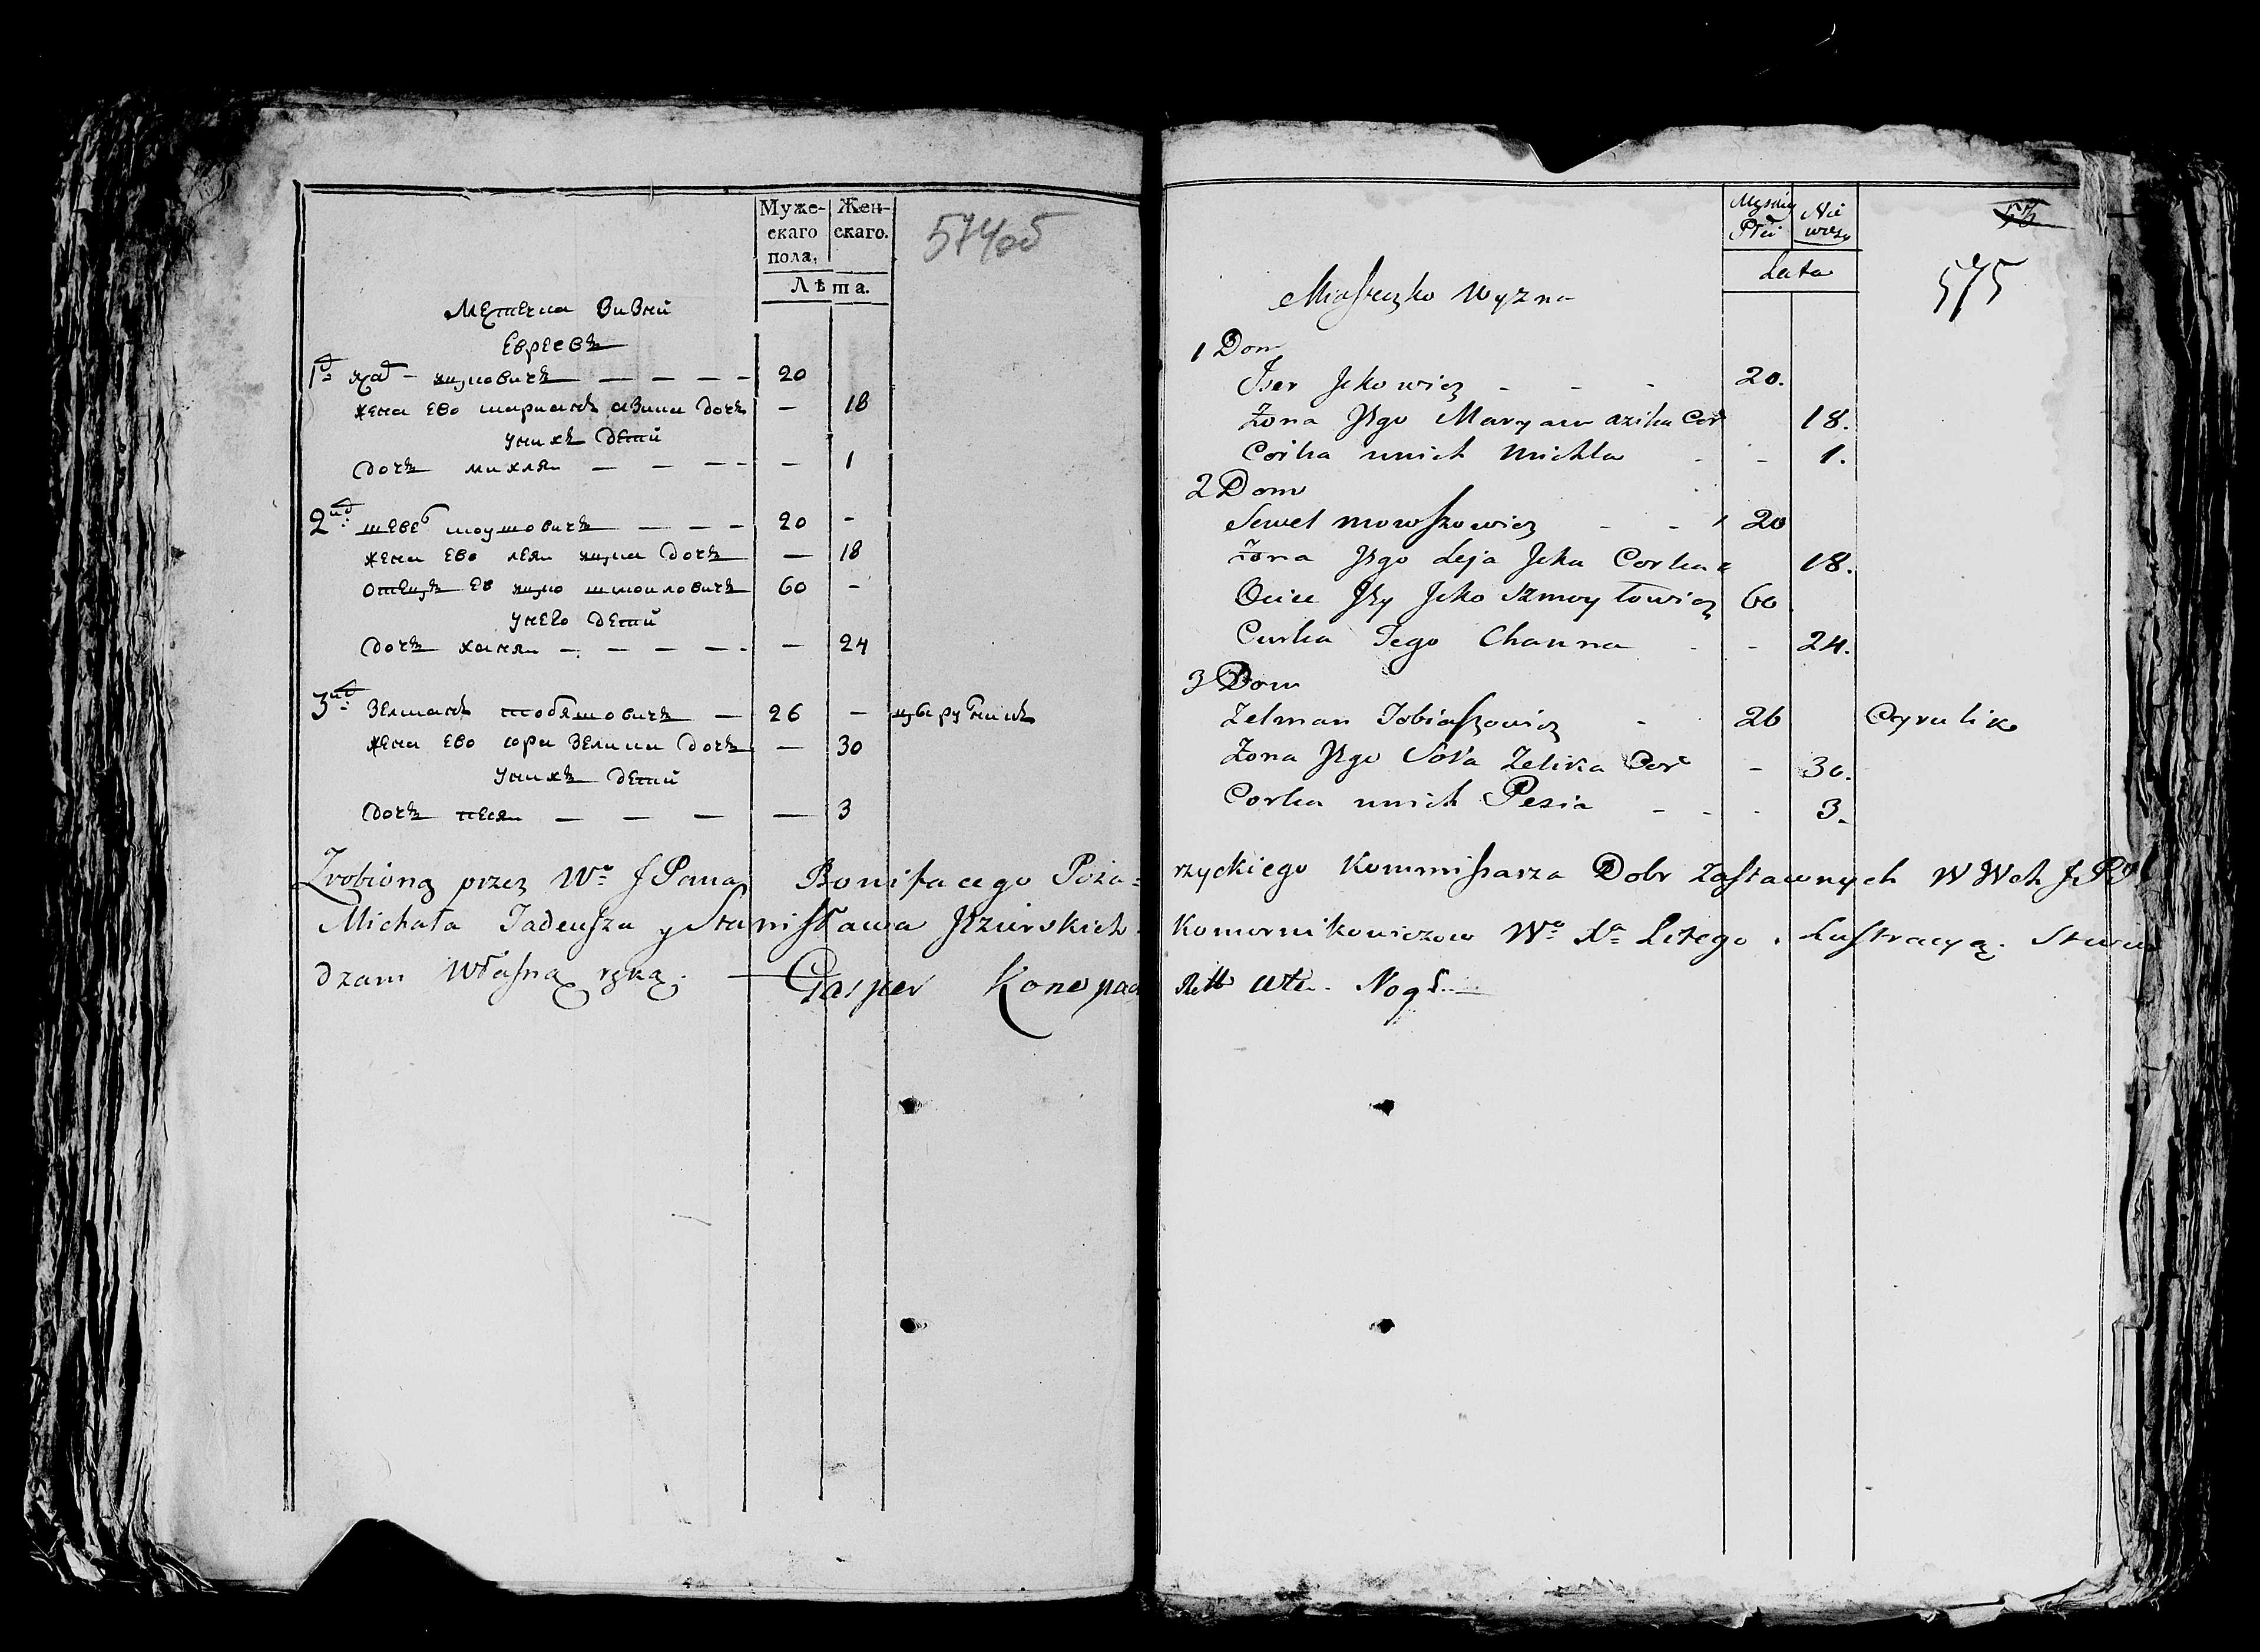 Муже-
скаго
пола,
Жен-
скаго.
Лѣта.
574об
Местечка визни
Евреевъ
1й ицковичъ — — — — 20
жена ево марианъ азика дочъ — 18
у нихъ детй
дочъ михля — — — — — 1
2й: шевел моушовичъ — — — 20 -
жена ево лея ицка дочъ — 18
отецъ ев ицко шмоиловичъ 60 -
у него детй
дочъ ханя — — — — — — 24
3й: зелманъ тобяшовичъ — 26 — цырулникъ
жена ево сора зелика дочъ — 30
у нихъ детй
дочъ песя — — — — 3
Męskiey Płci
Nie wies
Lata
575
Miasteczko Wyzna
1 Dom
Jser Jckowicz - - - 20.
Żona Jego Maryam azika Cor 18.
Corka unich Michla - - 1.
2 Dom
Sewel mowszowicz - - 20
Żona Jego Leja Jcka Corka 18.
Ociec Jey Jcko Szmoyłowicz 60
Curka Jego Channa - - 24.
3 Dom
Zelman Tobiaszowicz - 26 Cyrulik
Żona Jego Sora Zelika Cor - 30.
Corka unich Pesia - - - 3.
Zrobioną przez Wo JPana Bonifacego Poża=
rzyckiego Kommissarza Dobr Zastawnych W Wch J.P.
Michała Tadeusza y Stanisława Jezierskich
Komornikowiczow Wo Xa Litego. Lustracyą. Stwier
dzam własną ręką. — Gasper Konopac
Nogd.